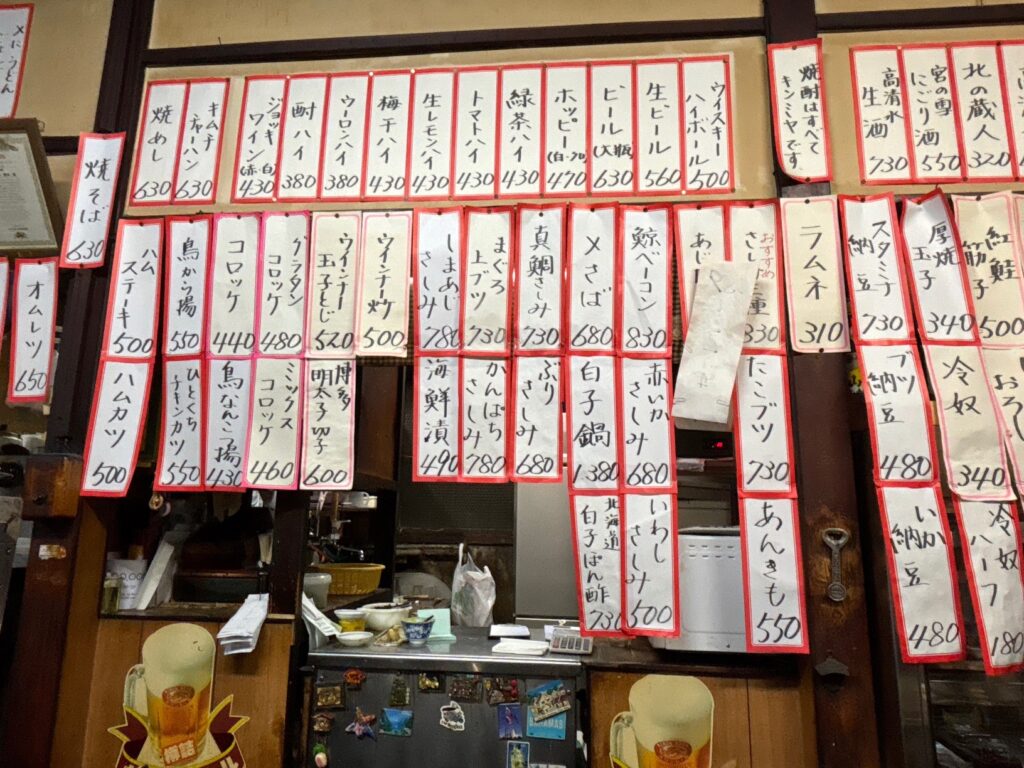 〆にうどん
焼めし 630
キムチチャーハン 630
ジョッキワイン(赤・白) 430
酎ハイ 380
ウーロンハイ 380
梅干ハイ 430
生レモンハイ 430
トマトハイ 430
緑茶ハイ 430
ホッピー 470
ビール(大瓶) 630
生ビール 560
ウイスキーハイボール 500
焼酎はすべてキンミヤです。
高清水生酒 730
宮の雪にごり酒 550
北の蔵人 320
焼そば 630
オムレツ 650
ハムステーキ 500
鳥から揚 550
コロッケ 440
グラタンコロッケ 480
ウインナー玉子とじ 520
ウインナー炒 500
しまあじさしみ 780
まぐろ上ブツ 730
真鯛さしみ 730
〆さば 680
鯨ベーコン 830
あじ
おすすめ
さし
330
ラムネ 310
スタミナ納豆 730
厚焼玉子 340
紅鮭
筋子
500
ハムカツ 500
ひとくちチキンカツ 550
鳥なんこつ揚 430
ミックスコロッケ 460
博多明太子切子 600
海鮮漬 490
かんぱちさしみ 780
ぶりさしみ 680
白子鍋 1380
赤いかさしみ 680
たこブツ 730
ブツ納豆 480
冷奴 340
おろし
北海道白子ぽん酢 730
いわしさしみ 500
あんきも 550
いか納豆 480
冷奴ハーフ 180